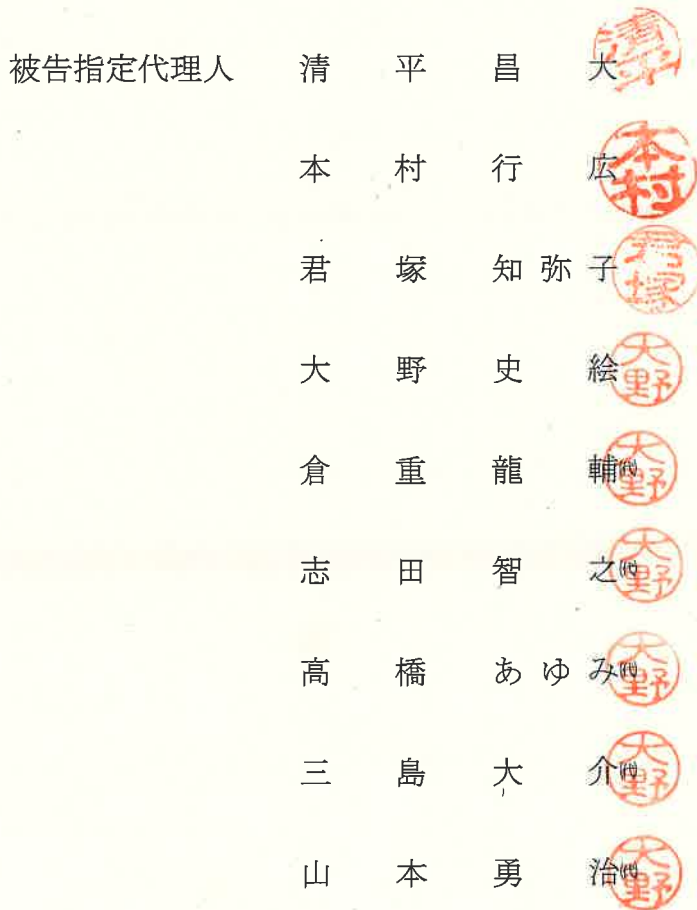 被告指定代理人 清平昌大 清平
本村行広 本村
君塚知弥子 君塚
大野史絵 大野
倉重龍輔㈹ 大野
志田智之㈹ 大野
高橋あゆみ㈹ 大野
三島大介㈹ 大野
山本勇治㈹ 大野